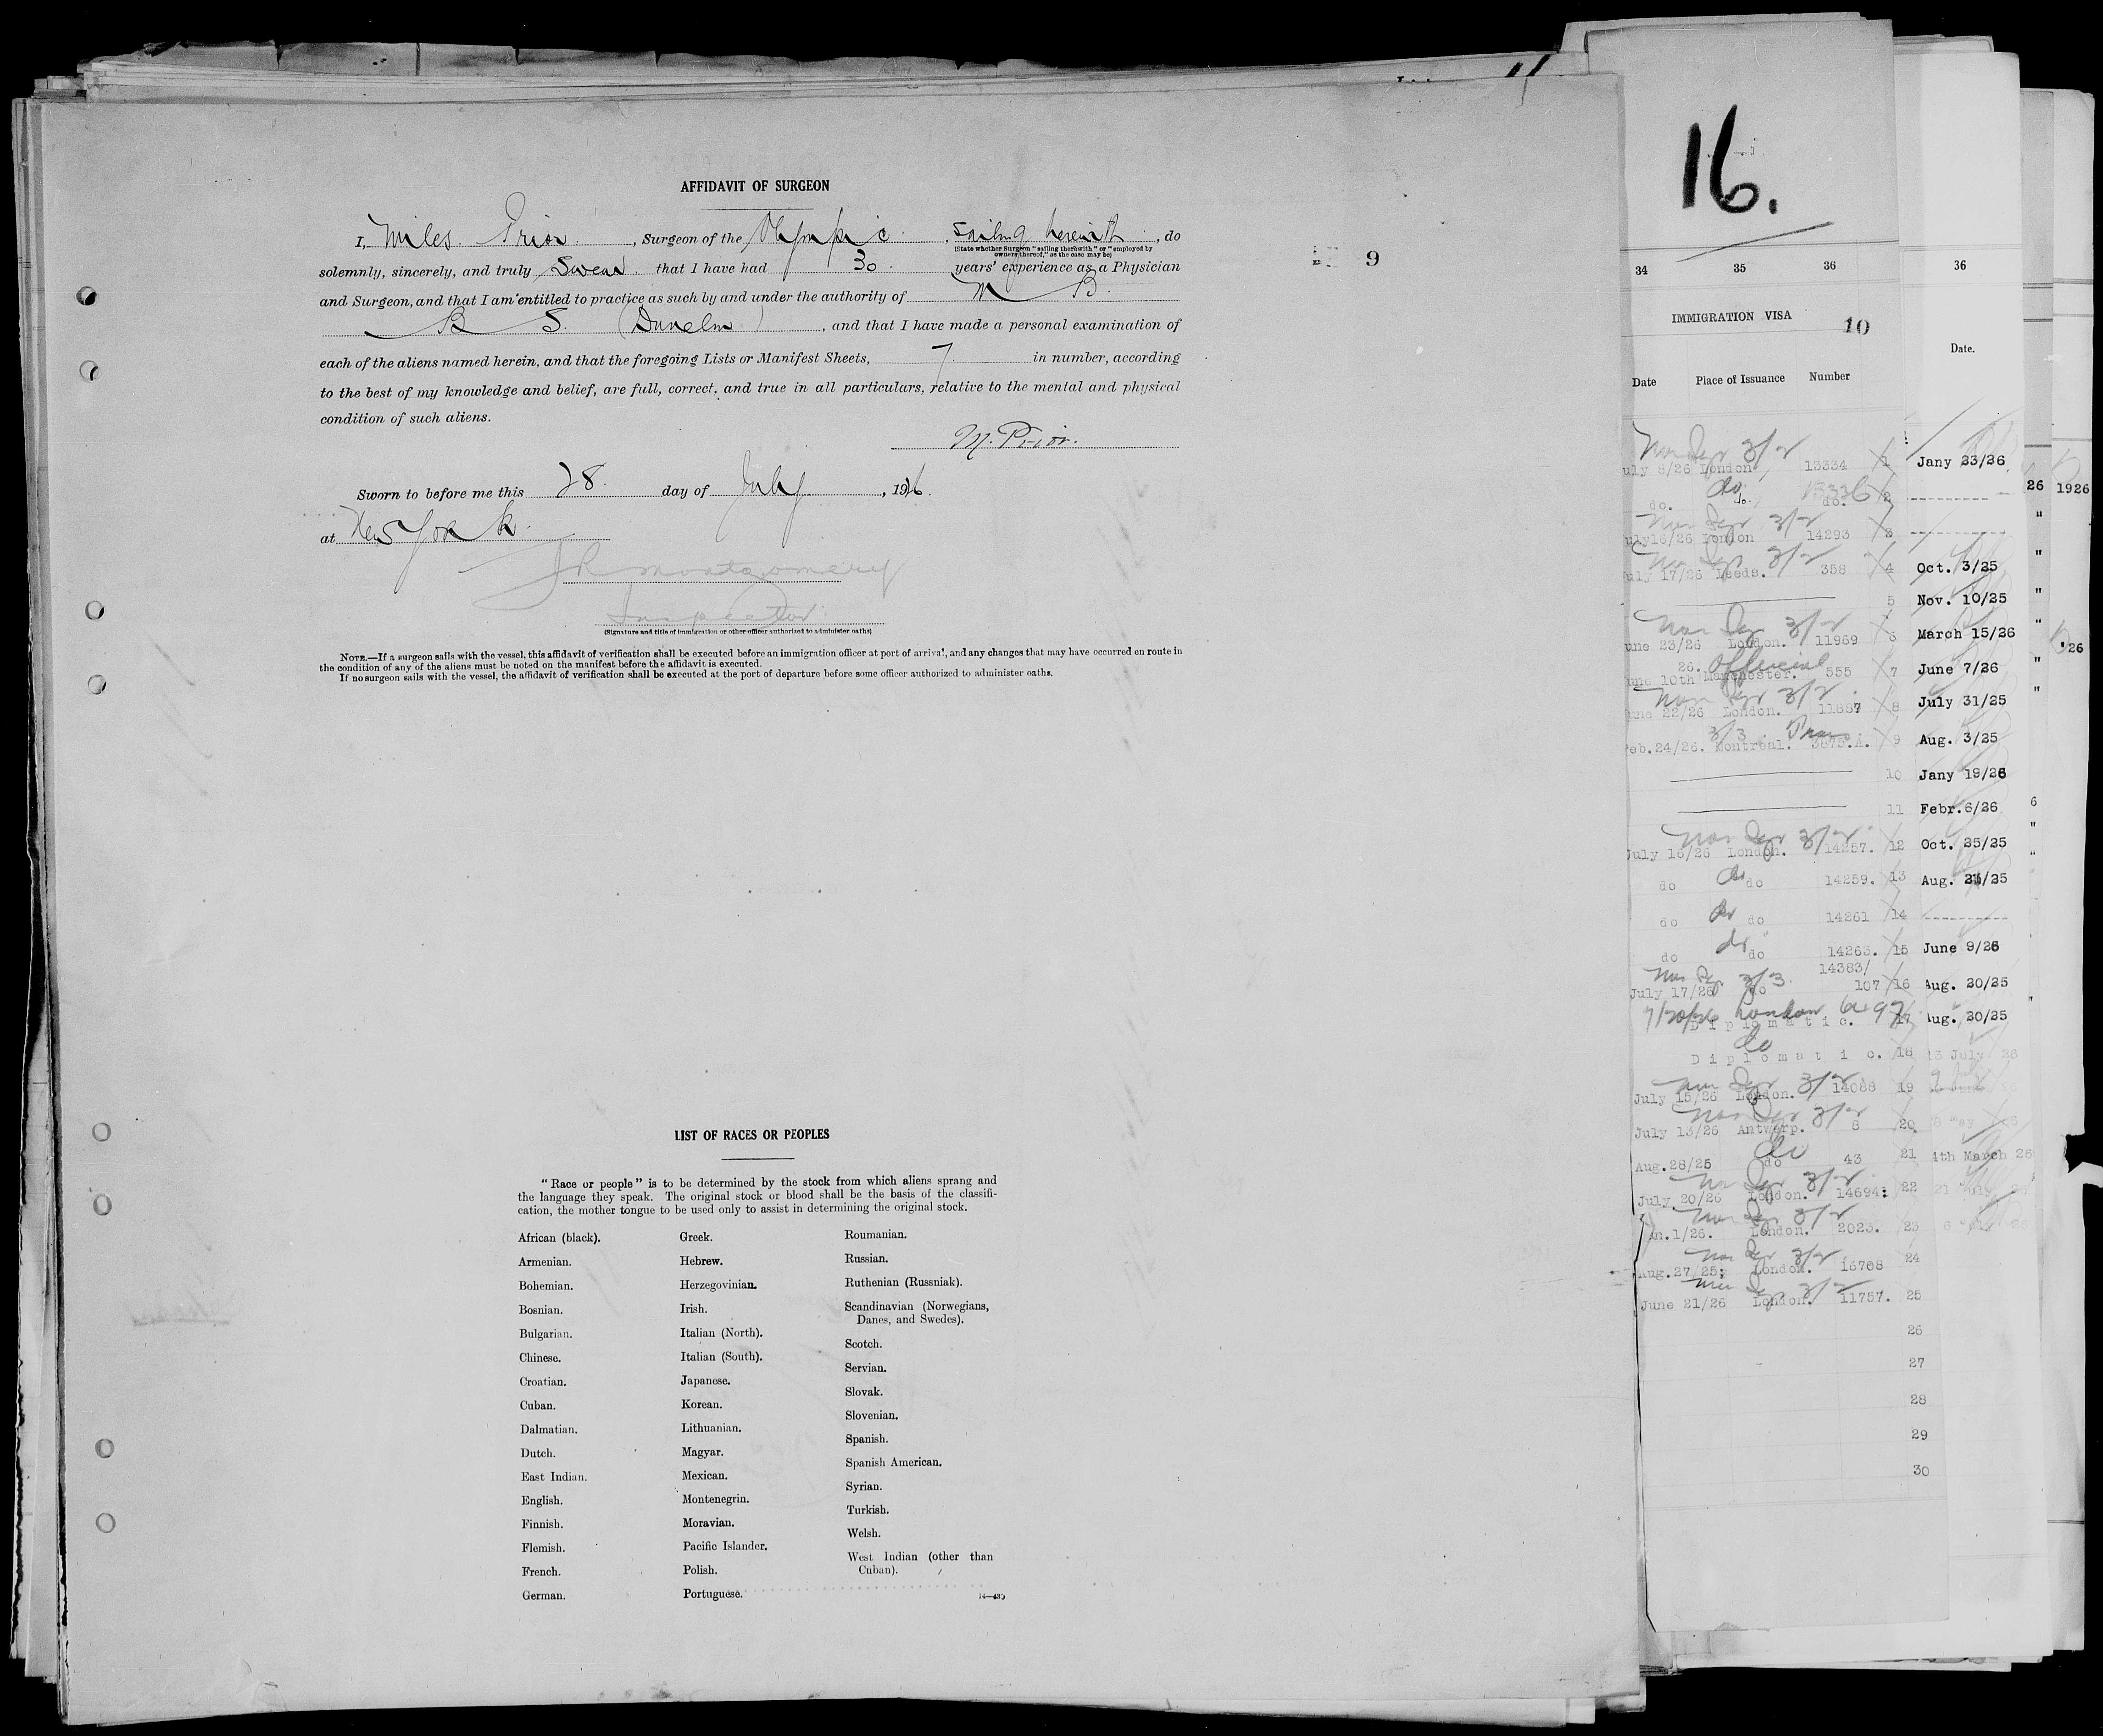 AFFIDAVIT OF SURGEON
I, Miles Prior, Surgeon of the Olympic, Sailing herewith, do
(State whether Surgeon "sailing therewith" or "employed by
owners thereof," as the case may be)
solemnly, sincerely, and truly Swear that I have had 30 years' experience as a Physician
and Surgeon, and that I am entitled to practice as such by and under the authority of M B.
B S. (Dunelm), and that I have made a personal examination of
each of the aliens named herein, and that the foregoing Lists or Manifest Sheets, 7 in number, according
to the best of my knowledge and belief, are full, correct, and true in all particulars, relative to the mental and physical
condition of such aliens.
M. Prior.
Sworn to before me this 28 day of July, 1926.
at New York
J R Montgomery
Inspector
(Signature and title of immigration or other officer authorized to administer oaths)
NOTE.—If a surgeon sails with the vessel, this affidavit of verification shall be executed before an immigration officer at port of arrival, and any changes that may have occurred en route in
the condition of any of the aliens must be noted on the manifest before the affidavit is executed.
If no surgeon sails with the vessel, the affidavit of verification shall be executed at the port of departure before some officer authorized to administer oaths.
9
LIST OF RACES OR PEOPLES
"Race or people" is to be determined by the stock from which aliens sprang and
the language they speak. The original stock or blood shall be the basis of the classifi-
cation, the mother tongue to be used only to assist in determining the original stock.
African (black).
Armenian.
Bohemian.
Bosnian.
Bulgarian.
Chinese.
Croatian.
Cuban.
Dalmatian.
Dutch.
East Indian.
English.
Finnish.
Flemish.
French.
German.
Greek.
Hebrew.
Herzegovinian.
Irish.
Italian (North).
Italian (South).
Japanese.
Korean.
Lithuanian.
Magyar.
Mexican.
Montenegrin.
Moravian.
Pacific Islander.
Polish.
Portuguese.
Roumanian.
Russian.
Ruthenian (Russniak).
Scandinavian (Norwegians,
Danes, and Swedes).
Scotch.
Servian.
Slovak.
Slovenian.
Spanish.
Spanish American.
Syrian.
Turkish.
Welsh.
West Indian (other than
Cuban).
16.
34 35 36
IMMIGRATION VISA 10
Date Place of Issuance Number
uly 8/26 London 13334 1
do. do. do. 2
uly16/26 London 14293 3
uly 17/26 Leeds. 358 4
5
une 23/26 London. 11969 6
26. official
une 10th Manchester. 555 7
une 22/26 London. 11887 8
eb.24/26. Montreal. 3675.A. 9
10
11
July 16/26 London. 14257. 12
do do 14259. 13
do do 14261 14
do do 14263. 15
14383/
July 17/26 do 107 16
7/20/26 London
Diplomatic. 17
Diplomatic. 18
July 15/26 London. 14088 19
July 13/26 Antwerp. 8 20
Aug.28/25 do 43 21
July 20/26 London. 14694 22
n.1/26. London. 2023. 23
Aug.27/25 London. 16768 24
June 21/26 London. 11757. 25
26
27
28
29
30
36
Date.
Jany 23/26
Oct. 3/25
Nov. 10/25
March 15/26
June 7/26
July 31/25
Aug. 3/25
Jany 19/26
Febr.6/26
Oct. 25/25
Aug. /25
June 9/26
Aug. 20/25
Aug. 20/25
4th March 26
26
1926
'26